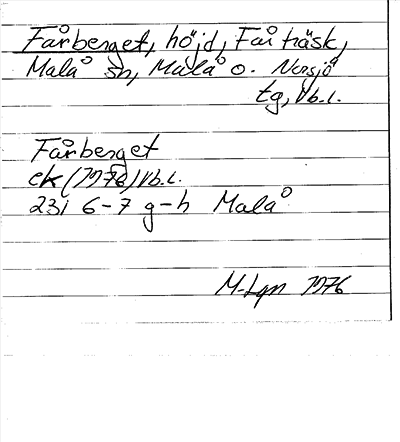 Fårberget, höjd, Fårträsk,
Malå sn, Malå o. Norsjö
tg, Vb.l.
Fårberget
ek (1976) Vb.l.
23I 6-7 g-h Malå
1976